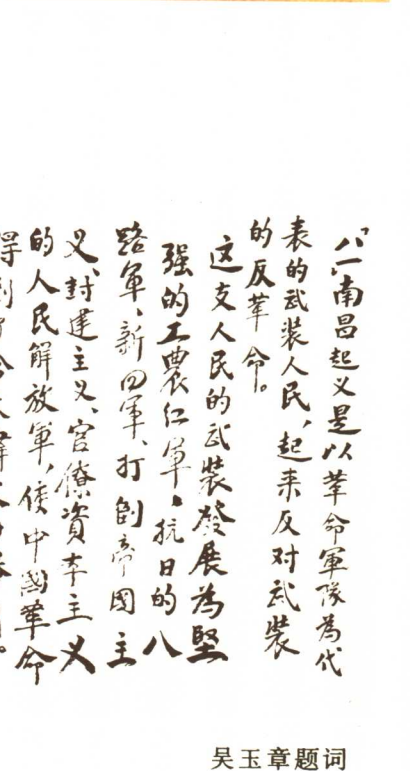 「八一」南昌起义是以革命軍隊為代
表的武装人民，起来反对武装
的反革命。
这支人民的武装發展為堅
强的工農红軍、抗日的八
路軍、新四軍、打倒帝國主
义、封建主义、官僚資本主义
的人民解放軍，使中國革命
得到
吴玉章题词